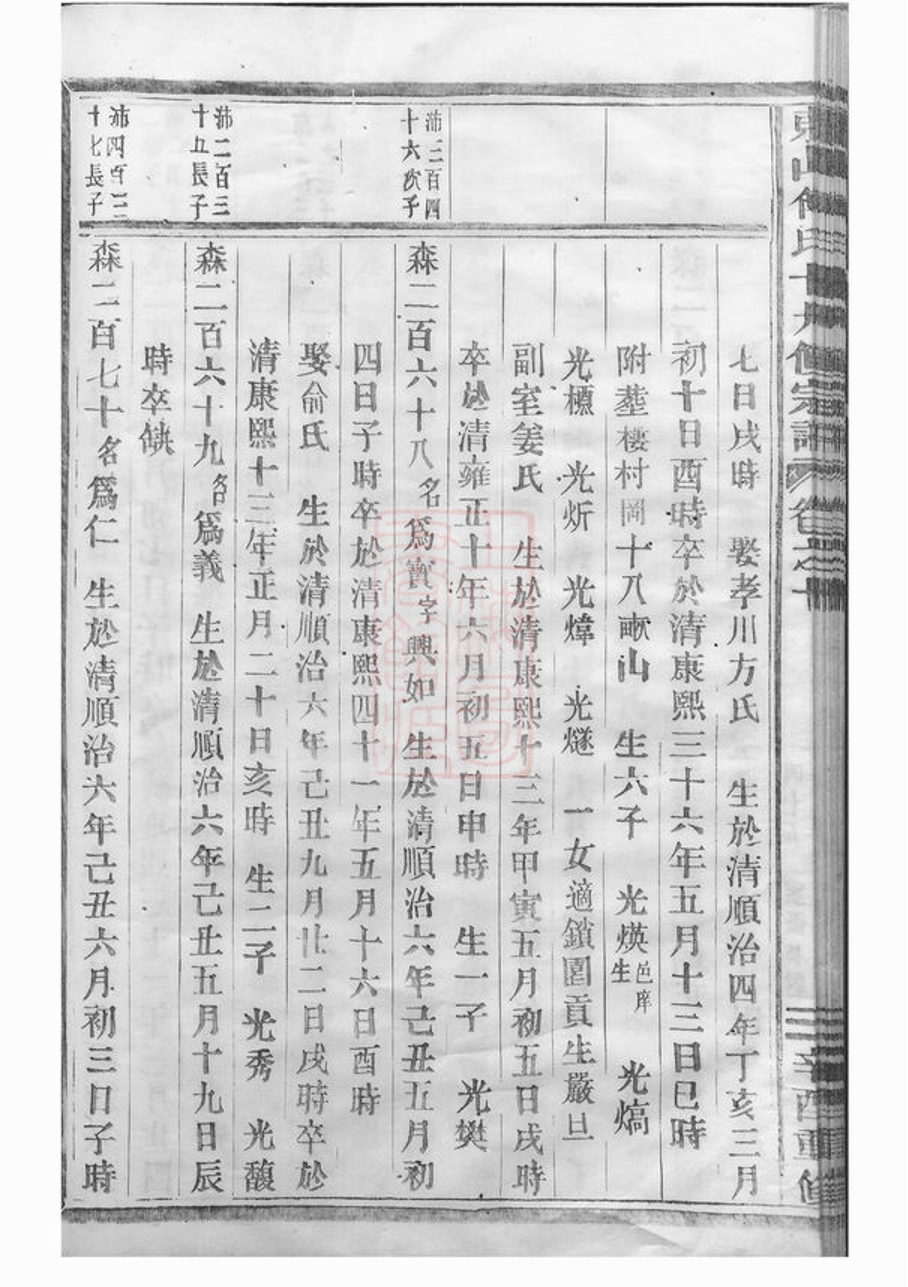 宗譜
卷之十
辛酉重修
七日戌時 娶孝川方氏 生於清順治四年丁亥三月
初十日酉時卒於清康熙三十六年五月十三日巳時
附塟棲村岡十八畝山 生六子 光煐邑庠生 光熇
光櫄 光炘 光煒 光燧 一女適鎖園貢生嚴旦
副室姜氏 生於清康熙十三年甲寅五月初五日戌時
卒於清雍正十年六月初五日申時 生一子 光樊
沛三百四十六次子
森二百六十八名為實字興如 生於清順治六年己丑五月初
四日子時卒於清康熙四十一年五月十六日酉時
娶俞氏 生於清順治六年己丑九月廿二日戌時卒於
清康熙十三年正月二十日亥時 生二子 光秀 光馥
沛二百三十五長子
森二百六十九名為義 生於清順治六年己丑五月十九日辰
時卒缺
沛四百三十七長子
森二百七十名為仁 生於清順治六年己丑六月初三日子時